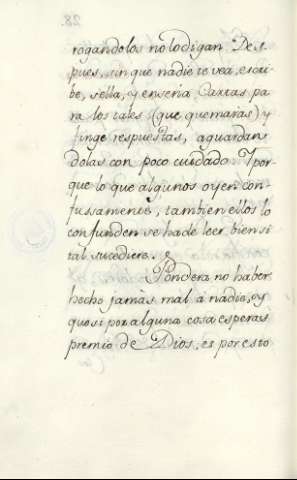 rogandolos no lo digan. Des
pues, sin que nadie te vea, escri
be, sella, y enseña Cartas pa
ra los tales (que quemaràs) y
finge respuestas, aguardan
dolas con poco cuidado. Y por
que lo que algunos oyen con-
fussamente, tambien ellos lo
confunden se ha de leer bien si
tal sucediere.
Pondera no haber
hecho jamàs mal à nadie, y
que si por alguna cosa esperas
premio de Dios, es por esto